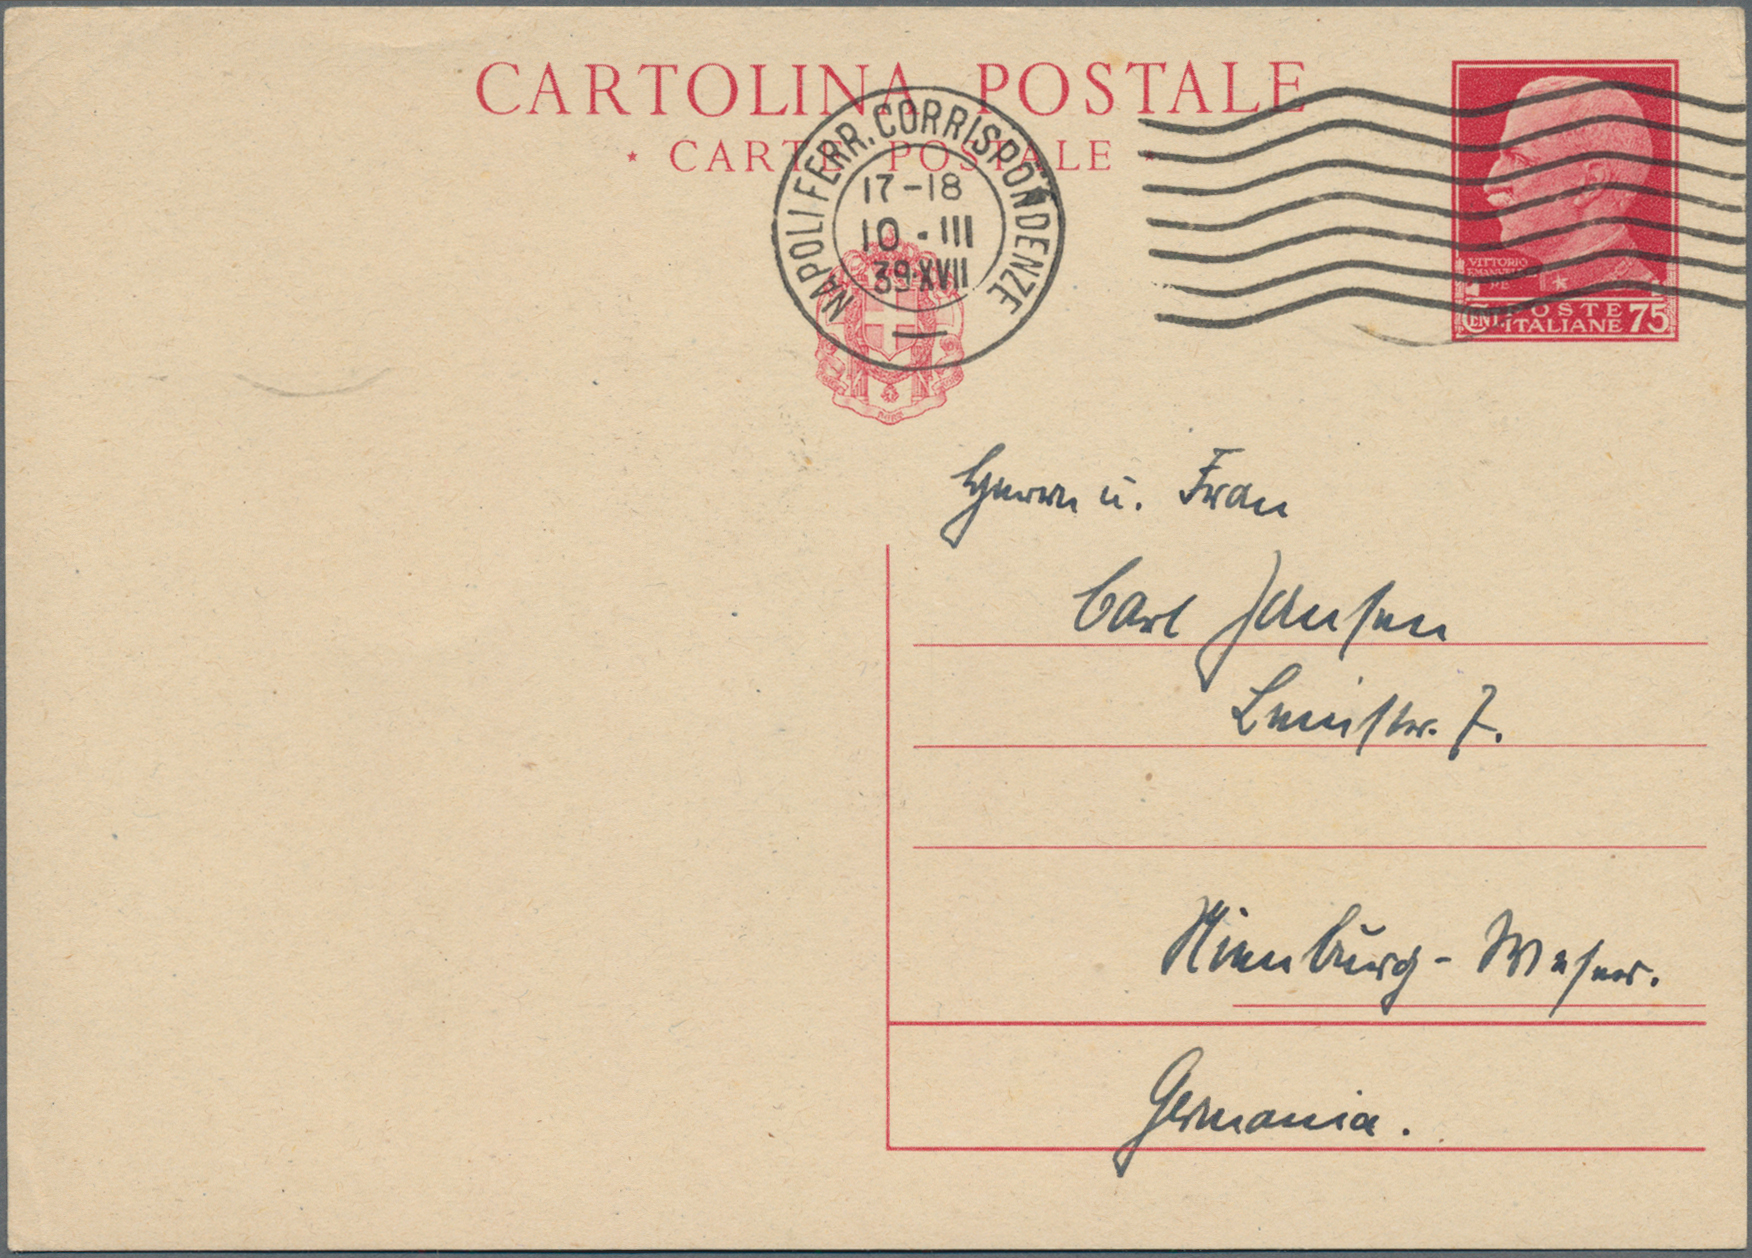 CARTOLINA POSTALE
* CARTE POSTALE *
NAPOLI FERR. CORRISPONDENZE
17-18
10 · III
39·XVII
VITTORIO
EMANUELE
RE
CENT. POSTE
ITALIANE 75
Herrn u. Frau
Carl Jansen
7.
Nienburg - Weser.
Germania.